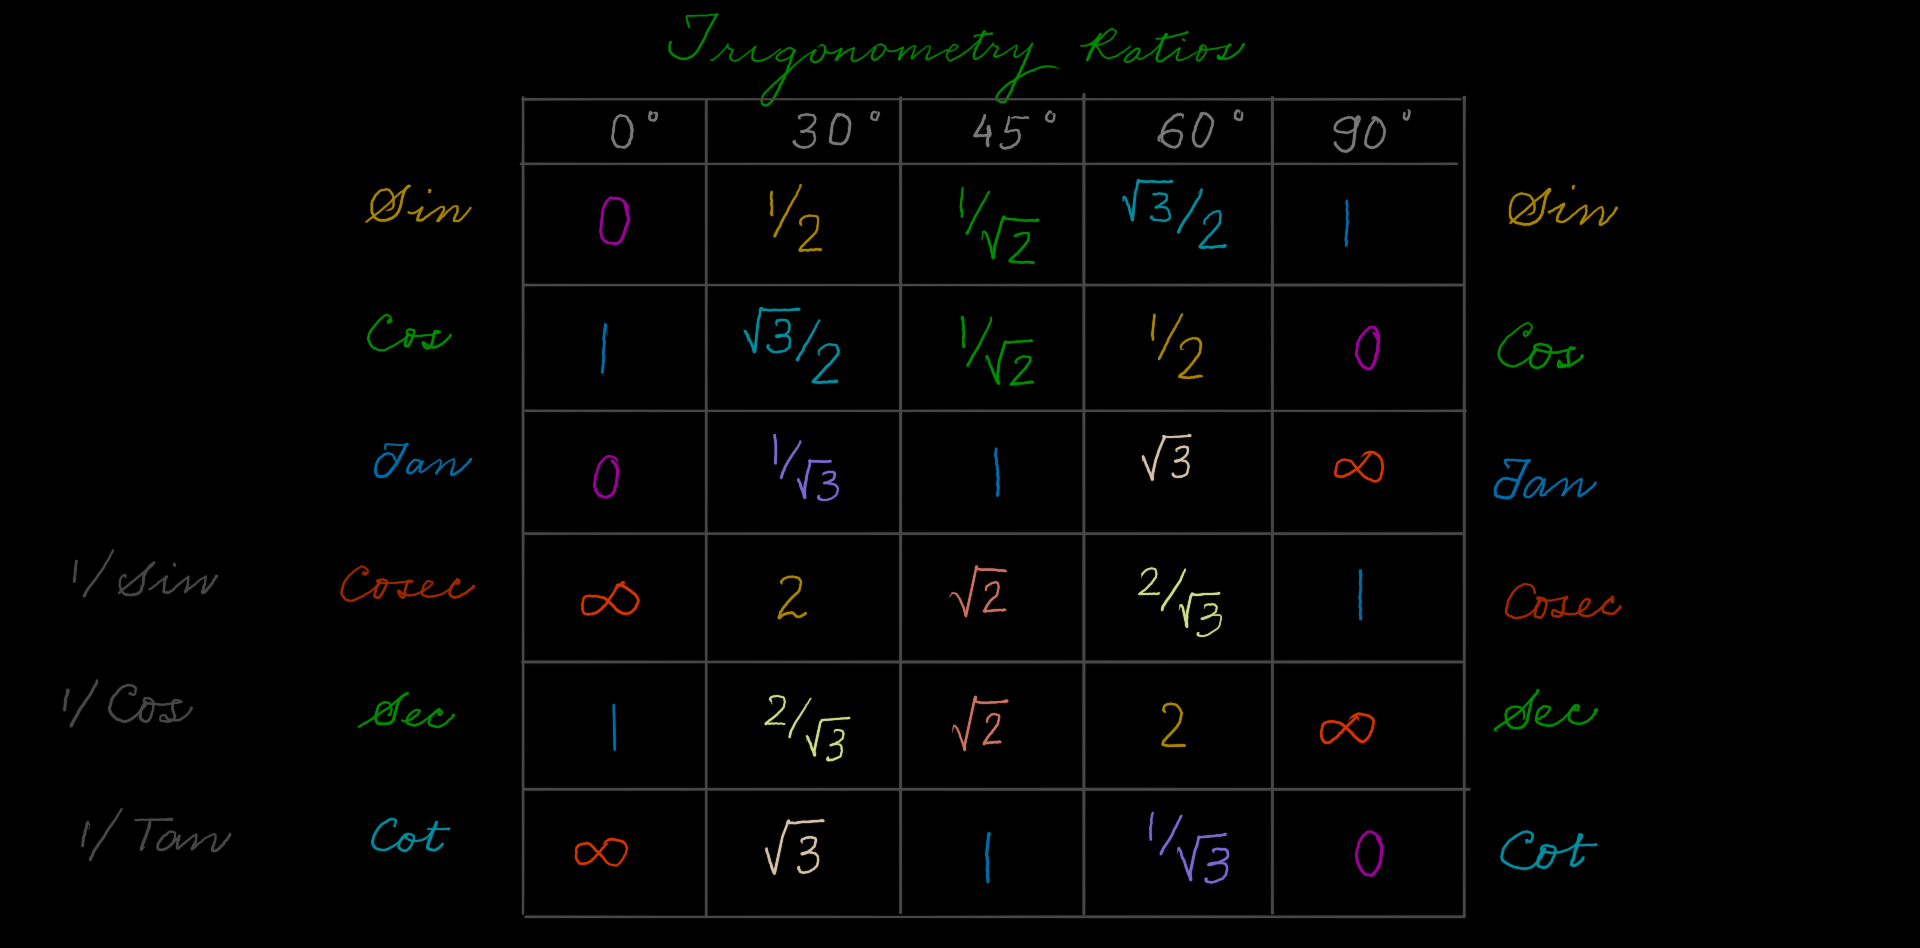 Trigonometry Ratios
0° 30° 45° 60° 90°
Sin 0 1/2 1/√2 √3/2 1 Sin
Cos 1 √3/2 1/√2 1/2 0 Cos
Tan 0 1/√3 1 √3 ∞ Tan
1/Sin Cosec ∞ 2 √2 2/√3 1 Cosec
1/Cos Sec 1 2/√3 √2 2 ∞ Sec
1/Tan Cot ∞ √3 1 1/√3 0 Cot